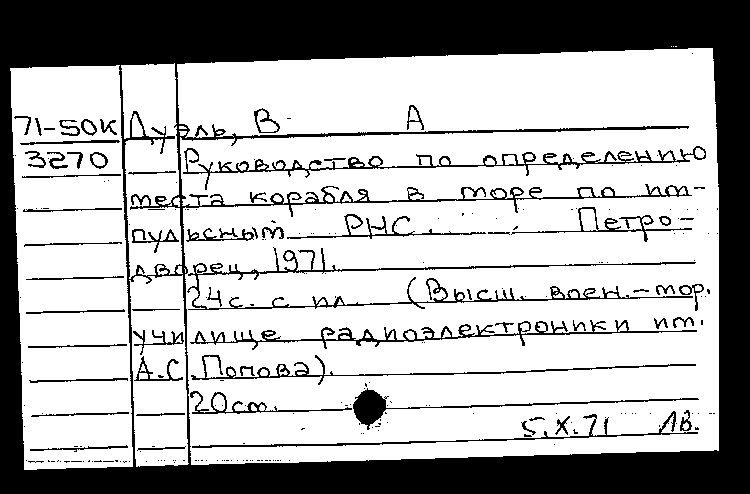 71-50К Дуэль, В А
3270 Руководство по определению
места корабля в море по им-
пульсным РНС. Петро-
дворец, 1971.
24с. с ил. (Высш. воен.-мор.
училище радиоэлектроники им.
А.С.Попова).
20см.
5.X.71 ЛВ.